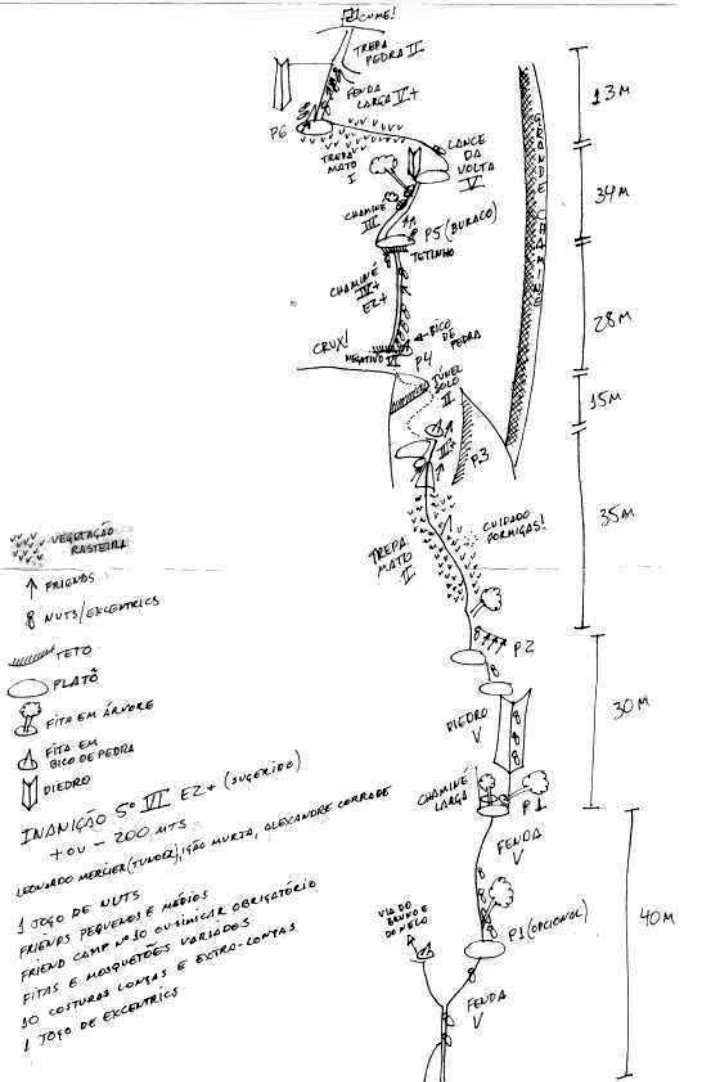 CUME!
TREPA
PEDRA II
FENDA
LARGA IV+
P6
TREPA
MATO
I
LANCE
DA
VOLTA
V
CHAMINÉ
III
P5 (BURACO)
TETINHO
CHAMINÉ
IV+
E2+
CRUX!
NEGATIVO VI
P4
BICO
DE
PEDRA
TÚNEL
SOLO
II
III+
P3
GRANDE CHAMINÉ
13M
34M
28M
15M
35M
30M
40M
TREPA
MATO
II
CUIDADO
FORMIGAS!
P2
DIEDRO
V
CHAMINÉ
LARGA
P1
FENDA
V
P1 (OPCIONAL)
VIA DO
BRUNO E
DO NELO
FENDA
V
VEGETAÇÃO
RASTEIRA
FRIENDS
NUTS/EXCENTRICS
TETO
PLATÔ
FITA EM ÁRVORE
FITA EM
BICO DE PEDRA
DIEDRO
INANIÇÃO 5º VI E2+ (SUGERIDO)
+ OU - 200 MTS
LEONARDO MERCIER (TUNDER), ALEXANDRE
1 JOGO DE NUTS
FRIENDS PEQUENOS E MÉDIOS
FRIEND CAMP Nº 10 OU SIMILAR OBRIGATÓRIO
FITAS E MOSQUETÕES VARIADOS
10 COSTURAS LONGAS E EXTRA-LONGAS
1 JOGO DE EXCENTRICS